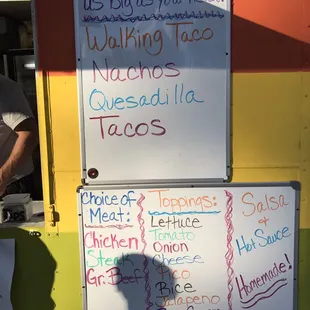 us Big as you
Walking Taco
Nachos
Quesadilla
Tacos
Choice of
Meat:
Chicken
Steak
Gr. Beef
Toppings:
Lettuce
Tomato
Onion
Cheese
Pico
Rice
Jalapeno
Salsa
&
Hot Sauce
Homemade!